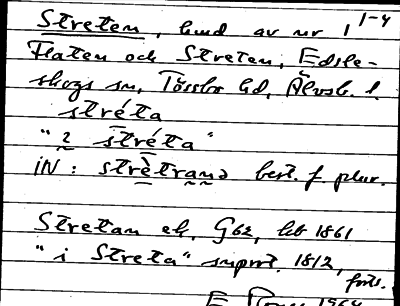 Streten, hmd av nr 1 1-4
Flaten och Streten, Edsle-
skogs sn, Tössbo hd, Älvsb. l.
stréta
"2 stréta"
iN: strètrana best. f. plur.
Stretan ek, G62, htb 1861
"i Streta" 1812,
forts.
1964